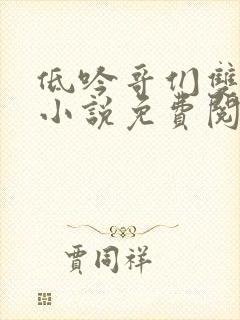 低吟哥们雙
小說免費閱
賈同祥